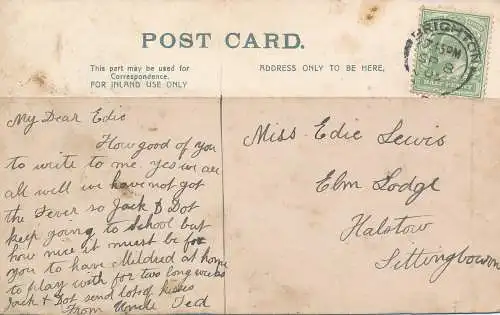 POST CARD.
This part may be used for
Correspondence.
FOR INLAND USE ONLY
ADDRESS ONLY TO BE HERE,
BRIGHTON
7.15 PM
SP 8
My Dear Edie
How good of you
to write to me. yes we are
all well we have not got
the Fever so Jack & Dot
keep going to School but
how nice it must be for
you to have Mildred at home
to play with for two long weeks
Jack & Dot send lots of kisses
From Uncle Ted
Miss Edie Lewis
Elm Lodge
Halstow
Sittingbourn